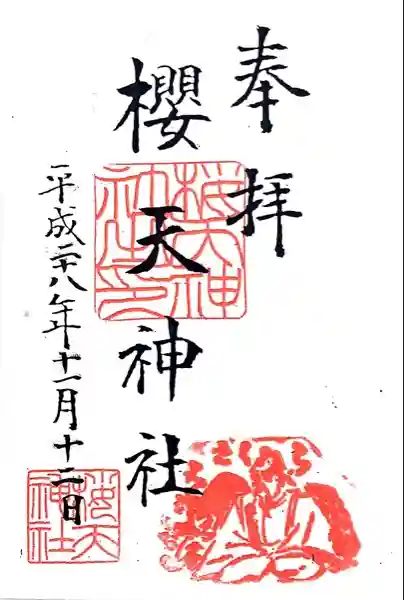 奉拝
櫻天神社
平成二十八年十一月十二日
桜天神社印
桜天神社